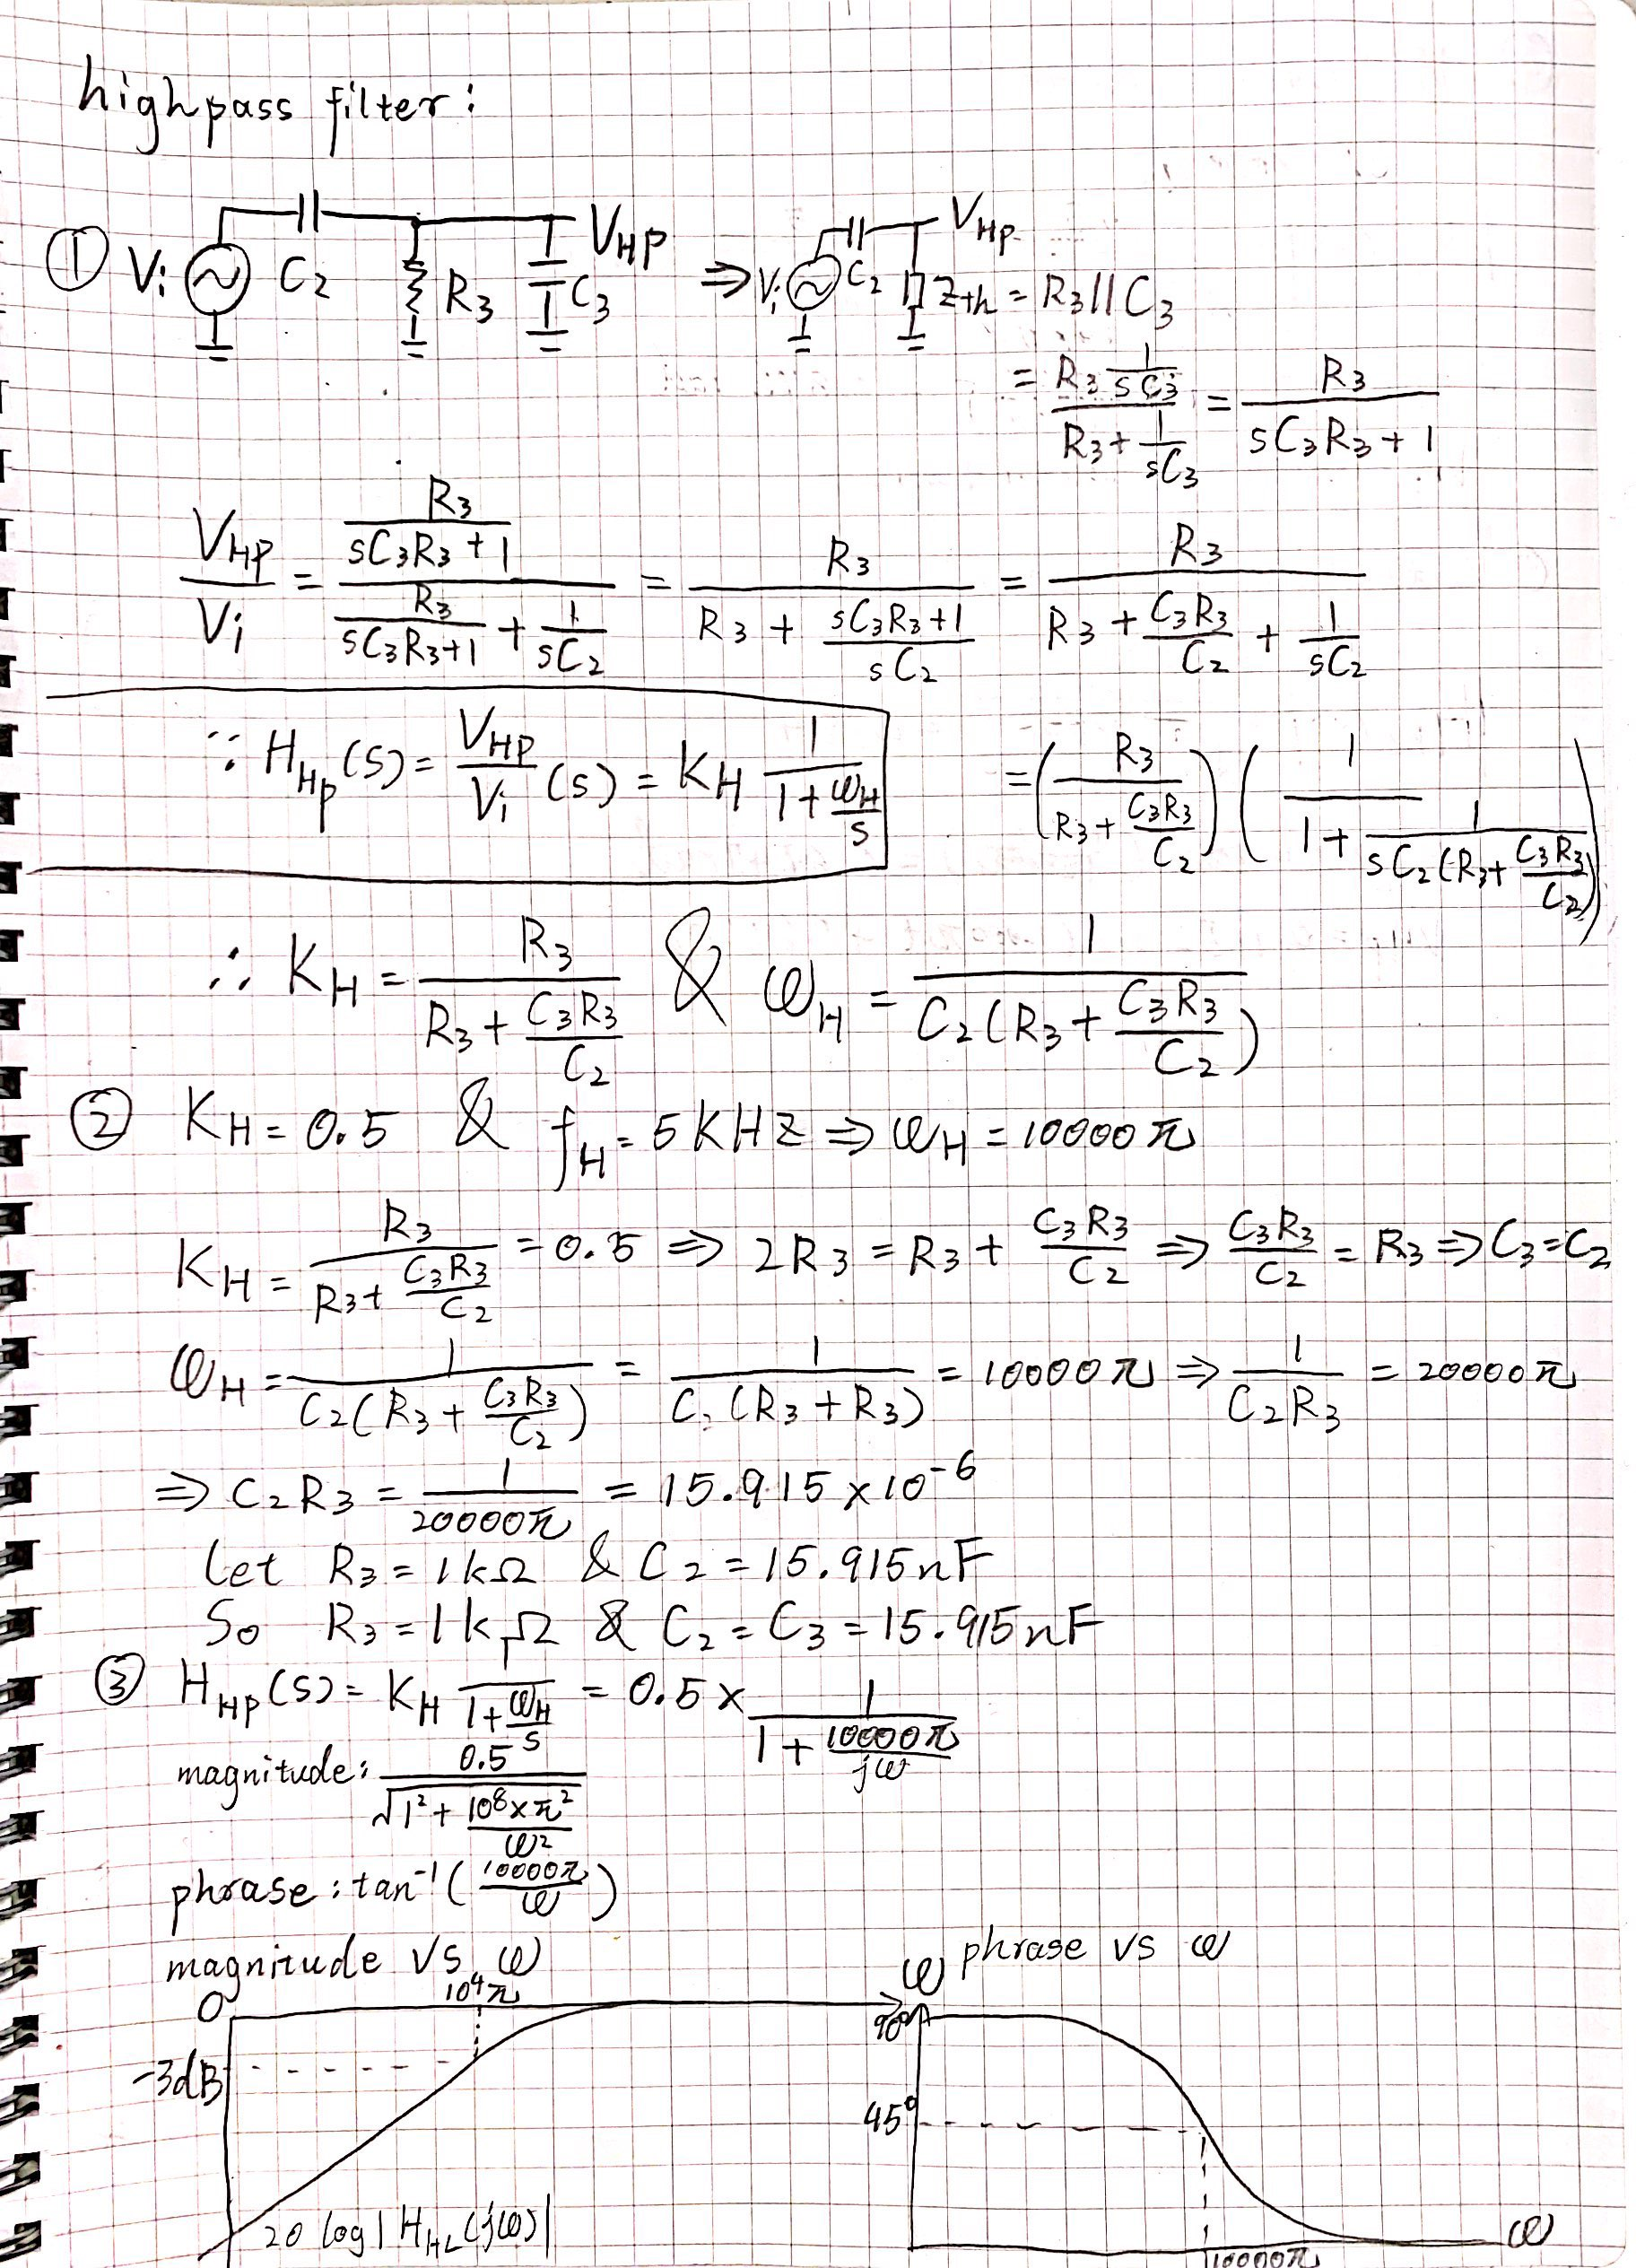 highpass filter:
① Vi C2 R3 C3 VHP ⇒ Vi C2 VHP Zth = R3 // C3
= (R3 1/(sC3)) / (R3 + 1/(sC3)) = R3 / (sC3R3 + 1)
VHP/Vi = (R3/(sC3R3 + 1)) / (R3/(sC3R3+1) + 1/(sC2)) = R3 / (R3 + (sC3R3+1)/(sC2)) = R3 / (R3 + C3R3/C2 + 1/(sC2))
∵ HHp(s) = VHP/Vi (s) = KH 1/(1 + ωH/s)
= (R3 / (R3 + C3R3/C2)) (1 / (1 + 1/(sC2(R3 + C3R3/C2))))
∴ KH = R3 / (R3 + C3R3/C2) & ωH = 1 / (C2(R3 + C3R3/C2))
② KH = 0.5 & fH = 5KHZ ⇒ ωH = 10000π
KH = R3 / (R3 + C3R3/C2) = 0.5 ⇒ 2R3 = R3 + C3R3/C2 ⇒ C3R3/C2 = R3 ⇒ C3 = C2
ωH = 1 / (C2(R3 + C3R3/C2)) = 1 / (C2(R3 + R3)) = 10000π ⇒ 1/(C2R3) = 20000π
⇒ C2R3 = 1/(20000π) = 15.915 × 10^-6
Let R3 = 1kΩ & C2 = 15.915nF
So R3 = 1kΩ & C2 = C3 = 15.915nF
③ HHP(s) = KH 1/(1 + ωH/s) = 0.5 × 1/(1 + 10000π/(jω))
magnitude: 0.5 / √(1² + (10^8 × π²)/ω²)
phrase: tan^-1(10000π/ω)
magnitude VS ω
phrase VS ω
0 10^4π ω
-3dB
20 log|HHL(jω)|
90°
45°
10000π ω